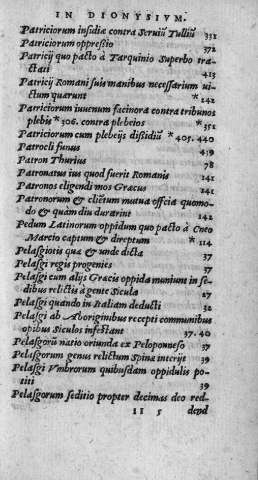 IN DIONYSIVM.
Patriciorum insidiæ contra Seruiũ Tulliũ 332
Patriciorum oppressio 372
Patricij quo pacto à Tarquinio Superbo tra
ctati 413
Patricij Romani suis manibus necessarium ui-
ctum quærunt *242
Parriciorum iuuenum facinora contra tribunos
plebis * 306. contra plebeios *351
Patriciorum cum plebeijs dißidiũ *405.440
Patrocli funus 439
Patron Thurius 78
Patronatus ius quod fuerit Romanis 141
Patronos eligendi mos Græcus 241
Patronorum & cliẽtum mutua officia quomo-
do & quam diu durarint 142
Pedum Latinorum oppidum quo pacto à Cneo
Marcio captum & direptum * 114
Pelasgiotis quæ & unde dicta 37
Pelasgi regis progenies 37
Pelasgi cum alijs Græcis oppida muniun in se-
dibus relictis à gente Sicula 27
Pelasgi quando in Italiam deducti 32
Pelasgi ab Aboriginibus recepti communibus
opibus Siculos infestant 37.40
Pelasgorũ natio oriunda ex Peloponneso 37
Pelasgorum genus relictum Spinæ interijt 39
Pelasgi Vmbrorum quibusdam oppidulis po-
titi 39
Pelasgorum seditio propter decimas deo red-
II 5 dend